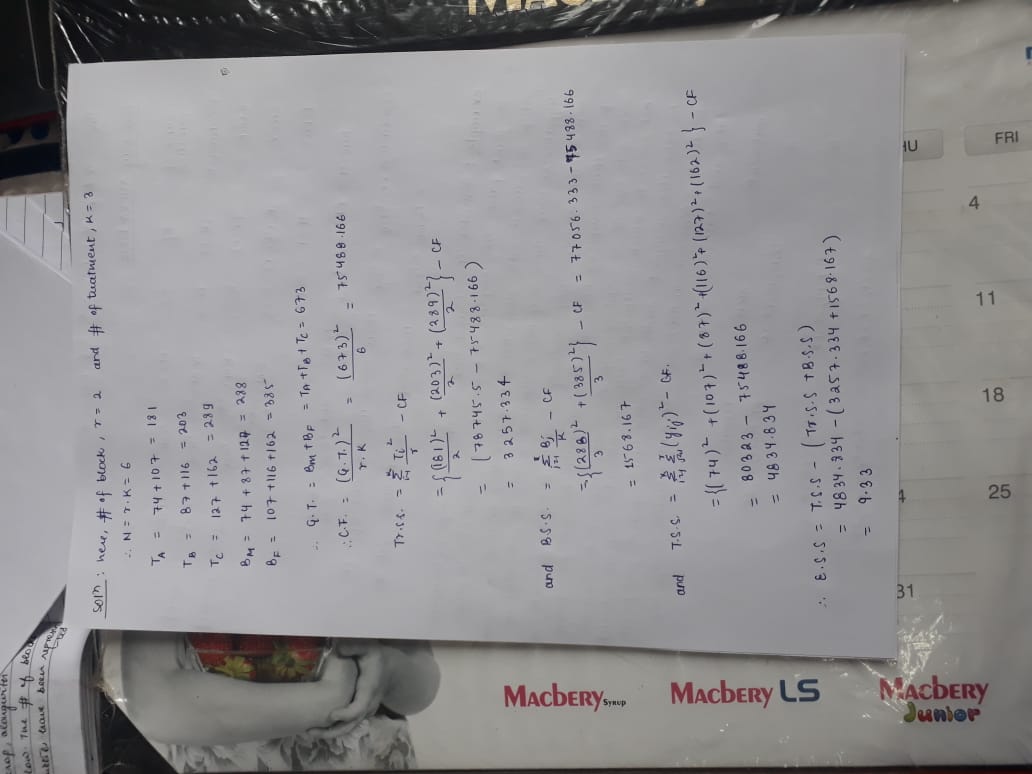 crop, alongwith
low. The # of bloc
have been repres
ted
Soln : here, # of block, r = 2 and # of treatment, K = 3
∴ N = r.K = 6
T_A = 74 + 107 = 181
T_B = 87 + 116 = 203
T_C = 127 + 162 = 289
B_M = 74 + 87 + 127 = 288
B_F = 107 + 116 + 162 = 385
∴ G.T. = B_M + B_F = T_A + T_B + T_C = 673
∴ C.F. = (G.T.)² / r.K = (673)² / 6 = 75488.166
Tr.S.S. = Σ_{i=1}^{K} T_i² / r - CF
= {(181)² / 2 + (203)² / 2 + (289)² / 2} - CF
= (78745.5 - 75488.166)
= 3257.334
and B.S.S. = Σ_{j=1}^{r} B_j / K - CF
= {(288)² / 3 + (385)² / 3} - CF = 77056.333 - 75488.166
= 1568.167
and T.S.S. = Σ_{i=1}^{K} Σ_{j=1}^{r} (y_ij)² - CF.
= {(74)² + (107)² + (87)² + (116)² + (127)² + (162)²} - CF
= 80323 - 75488.166
= 4834.834
∴ E.S.S = T.S.S - (Tr.S.S + B.S.S)
= 4834.834 - (3257.334 + 1568.167)
= 9.33
MACBERY Syrup
MACBERY LS
MACBERY Junior
31
4
25
18
11
4
HU
FRI